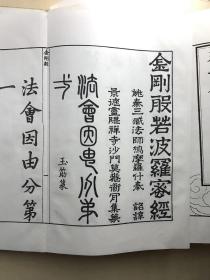 金剛般若波羅蜜經
姚秦三藏法師鳩摩羅什奉 詔譯
景德靈隱禪寺沙門莫菴道肯集篆
法會因由分第
弌
玉筋篆
金剛經
法會因由分第
一